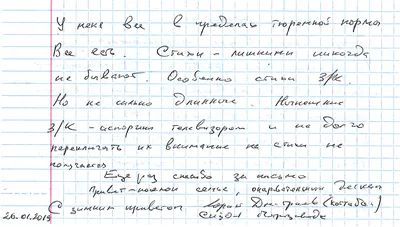 У меня все в пределах тюремной нормы
Все есть. Стихи - лишними никогда
не бывают. Особенно стихи З/К.
Но не сильно длинные. Нынешние
З/К - испорчены телевизором и на долго
переключать их внимание на стихи не
получается
Еще раз спасибо за письмо
Привет поклон семье,
С зимним приветом Юрий Дмитриев (хоттабыч)
26.01.2019 СИЗО1